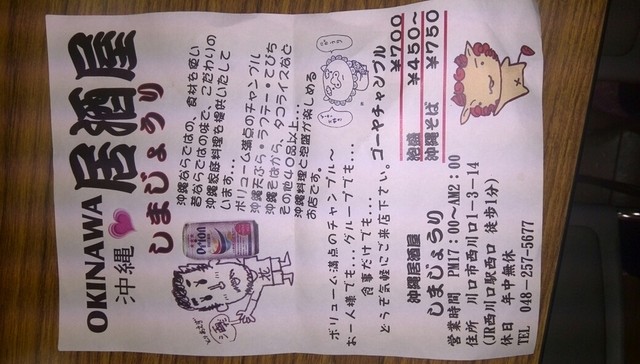 OKINAWA 居酒屋
沖縄 しまじょうり
沖縄ならではの、食材を使い
昔ならではの味で、こだわりの
沖縄家庭料理を提供いたして
います…
ボリューム満点のチャンプル
沖縄天ぷら・ラフテー・てびち
沖縄そばから、タコライスなど
その他40品以上…
沖縄料理と泡盛が楽しめる
お店です。
Orion
ボリューム満点のチャンプル〜
お一人様でも…グループでも…
食事だけでも…
どうぞ気軽にご来店下さい。
ゴーヤチャンプル ¥700
泡盛 ¥450〜
沖縄そば ¥750
沖縄居酒屋
しまじょうり
営業時間 PM17:00〜AM2:00
住所 川口市西川口1-3-14
(JR西川口駅西口 徒歩1分)
休日 年中無休
TEL 048-257-5677